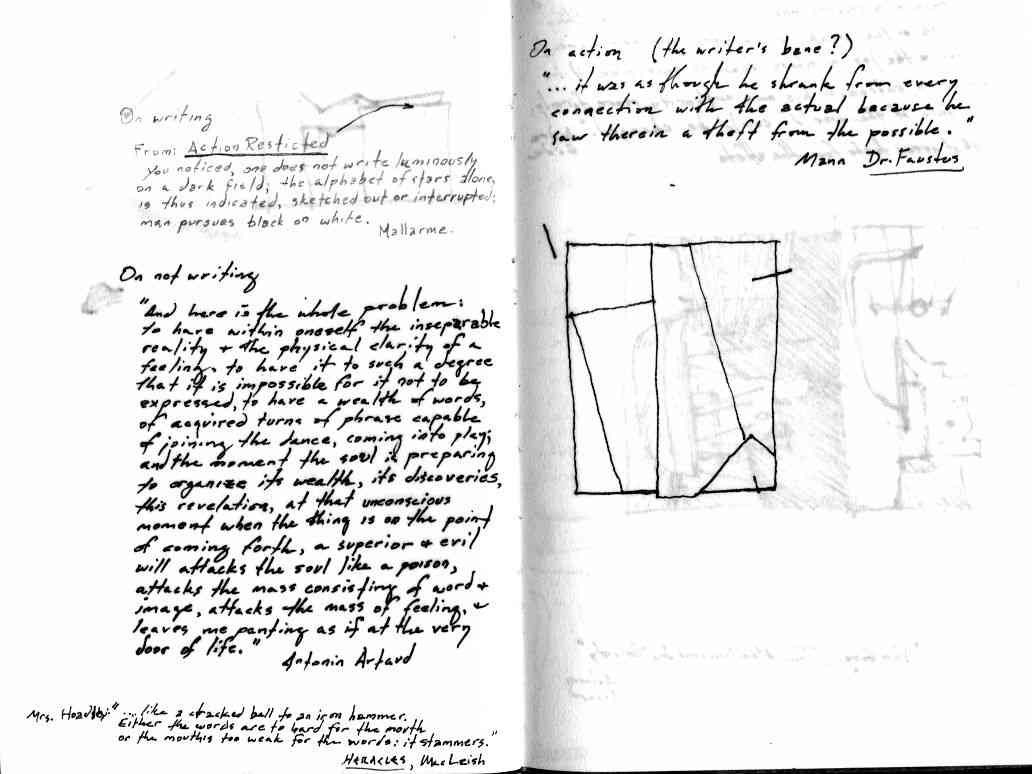 On writing
From: Action Resticted
You noticed, one does not write luminously
on a dark field; the alphabet of stars alone,
is thus indicated, sketched out or interrupted;
man pursues black on white.
Mallarme.
On not writing
"And here is the whole problem:
to have within oneself the inseparable
reality + the physical clarity of a
feeling, to have it to such a degree
that it is impossible for it not to be
expressed, to have a wealth of words,
of acquired turns of phrase capable
of joining the dance, coming into play;
and the moment the soul is preparing
to organize its wealth, its discoveries,
this revelation, at that unconscious
moment when the thing is on the point
of coming forth, a superior + evil
will attacks the soul like a poison,
attacks the mass consisting of word +
image, attacks the mass of feeling, +
leaves me panting as if at the very
door of life."
Antonin Artaud
Mrs. "...like a cracked bell to an iron hammer.
Either the words are to hard for the mouth
or the mouth is too weak for the words: it stammers."
HERACLES, MacLeish
On action (the writer's bane?)
"... it was as though he shrank from every
connection with the actual because he
saw therein a theft from the possible."
Mann Dr. Faustus